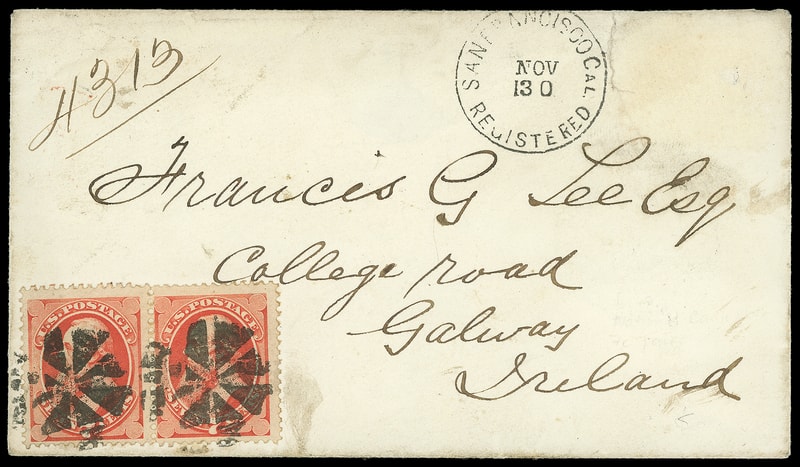 4313
SAN FRANCISCO CAL.
NOV
13 0
REGISTERED
Francis G Lee Esq
College road
Galway
Ireland
U.S. POSTAGE U.S. POSTAGE